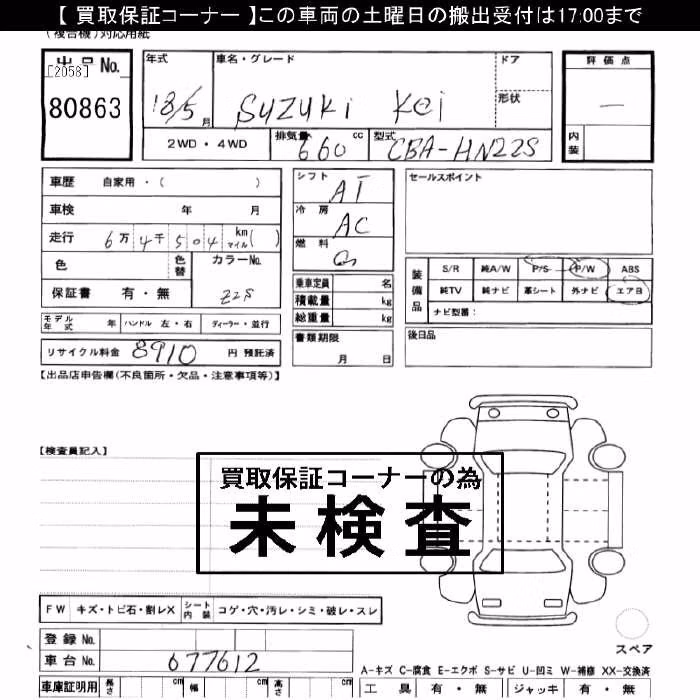 【 買取保証コーナー 】この車両の土曜日の搬出受付は17:00まで
(複合機)対応用紙
出品 No.
[2058]
80863
年式
18/5
月
車名・グレード
SUZUKI Kei
ドア
形状
評価点
—
内装
2WD・4WD
排気量
660
cc
型式
CBA-HN22S
車歴 自家用・( )
車検 年 月
走行 6万4千504 km マイル( )
色
色替
カラーNo.
Z2S
保証書 有・無
モデル年式 年
ハンドル 左・右
ディーラー・並行
リサイクル料金 8910 円 預託済
シフト
AT
冷房
AC
燃料
G
乗車定員 名
積載量 kg
総重量 kg
書類期限
月 日
セールスポイント
装備品
S/R 純A/W P/S P/W ABS
純TV 純ナビ 革シート 外ナビ エアB
ナビ型番:
後日品
【出品店申告欄(不良箇所・欠品・注意事項等)】
【検査員記入】
買取保証コーナーの為
未検査
FW キズ・トビ石・割レX
シート内装 コゲ・穴・汚レ・シミ・破レ・スレ
登録 No.
車台 No. 677612
車庫証明用 長さ cm 幅 cm 高さ cm
スペア
A-キズ C-腐食 E-エクボ S-サビ U-凹ミ W-補修 XX-交換済
工具 有・無 ジャッキ 有・無